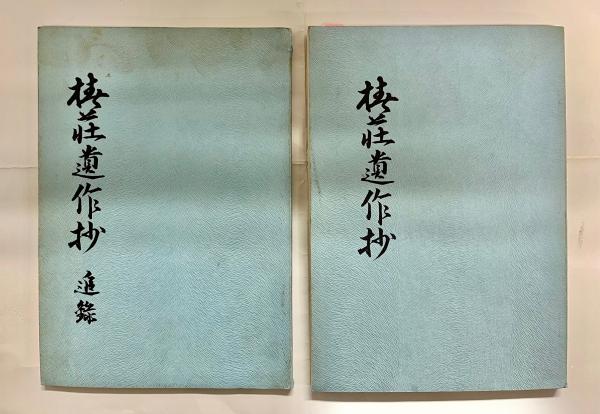 椿荘遺作抄
椿荘遺作抄 追録